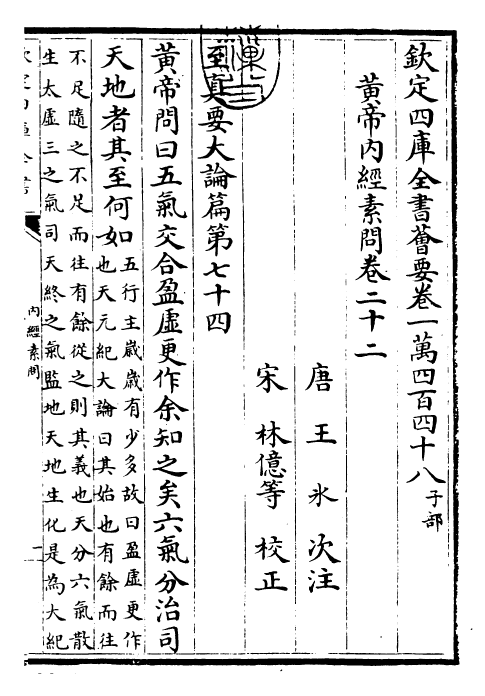 欽定四庫全書薈要卷一萬四百四十八子部
黃帝內經素問卷二十二
唐王氷次注
宋林億等校正
至真要大論篇第七十四
黃帝問曰五氣交合盈虛更作余知之矣六氣分治司
天地者其至何如五行主歲歲有少多故曰盈虛更作
也天元紀大論曰其始也有餘而往
不足隨之不足而往有餘從之則其義也天分六氣散
生太虛三之氣司天終之氣監地天地生化是為大紀
內經素問